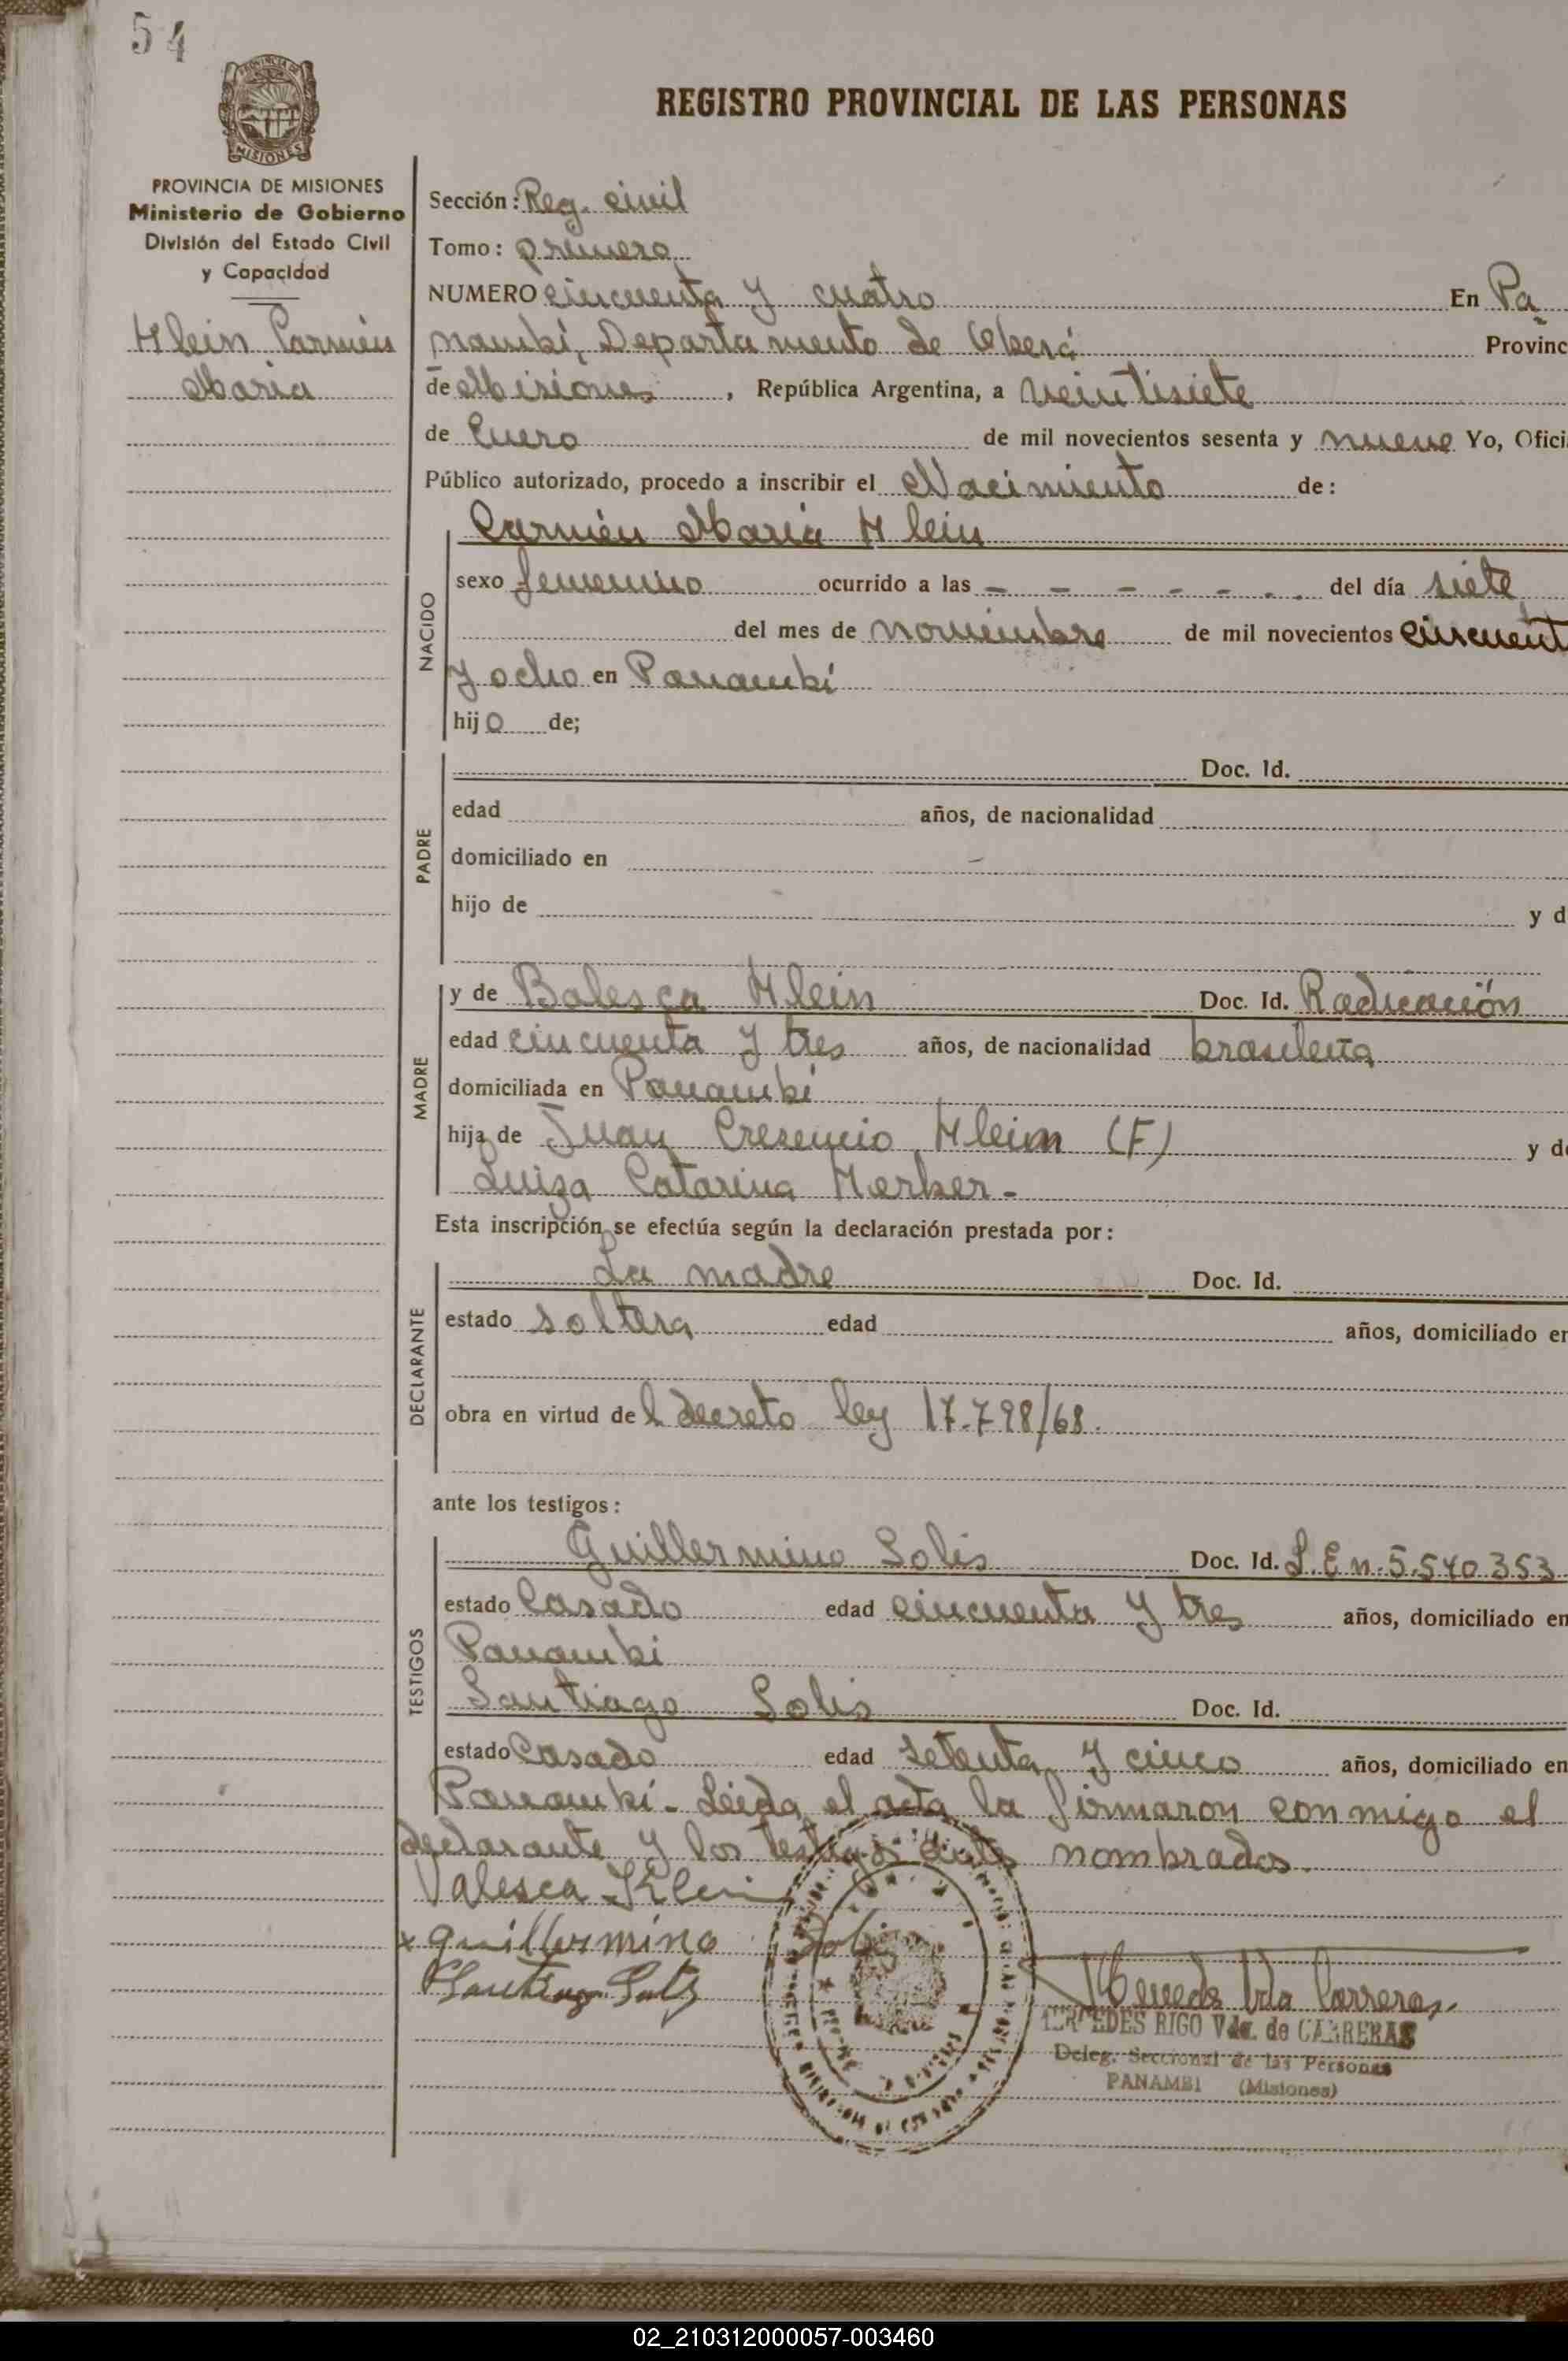 54
REGISTRO PROVINCIAL DE LAS PERSONAS
MISIONES
PROVINCIA DE MISIONES
Ministerio de Gobierno
División del Estado Civil
y Capacidad
Klein Carmén
Maria
Sección: Reg. civil
Tomo: primero
NUMERO cincuenta y cuatro En Pa
nambí, Departamento de Oberá Provinc
de Misiones, República Argentina, a veintisiete
de Enero de mil novecientos sesenta y nueve Yo, Ofici
Público autorizado, procedo a inscribir el Nacimiento de:
Carmén Maria Klein
NACIDO
sexo femenino ocurrido a las - - - - - . . del día siete
del mes de noviembre de mil novecientos cincuent
y ocho en Panambí
hijo de;
PADRE
Doc. Id.
edad años, de nacionalidad
domiciliado en
hijo de y d
MADRE
y de Balesca Klein Doc. Id. Radicación
edad cincuenta y tres años, de nacionalidad brasileña
domiciliada en Panambí
hija de Juan Cresencio Kleim (F) y de
Luiza Catarina Kerber -
Esta inscripción se efectúa según la declaración prestada por:
DECLARANTE
La madre Doc. Id.
estado soltera edad años, domiciliado en
obra en virtud del decreto ley 17.798/68.
ante los testigos:
TESTIGOS
Guillermino Solis Doc. Id. L.E n. 5.540.353
estado Casado edad cincuenta y tres años, domiciliado en
Panambi
Santiago Solis Doc. Id.
estado Casado edad setenta y cinco años, domiciliado en
Panambí - Leida el acta la firmaron conmigo el
declarante y los testigos antes nombrados.
Valesca Klein
x guillermino Solis
Mercedes Vda Carreras
MERCEDES RIGO Vda. de CARRERAS
Deleg. Seccional de las Personas
PANAMBI (Misiones)
02_210312000057-003460